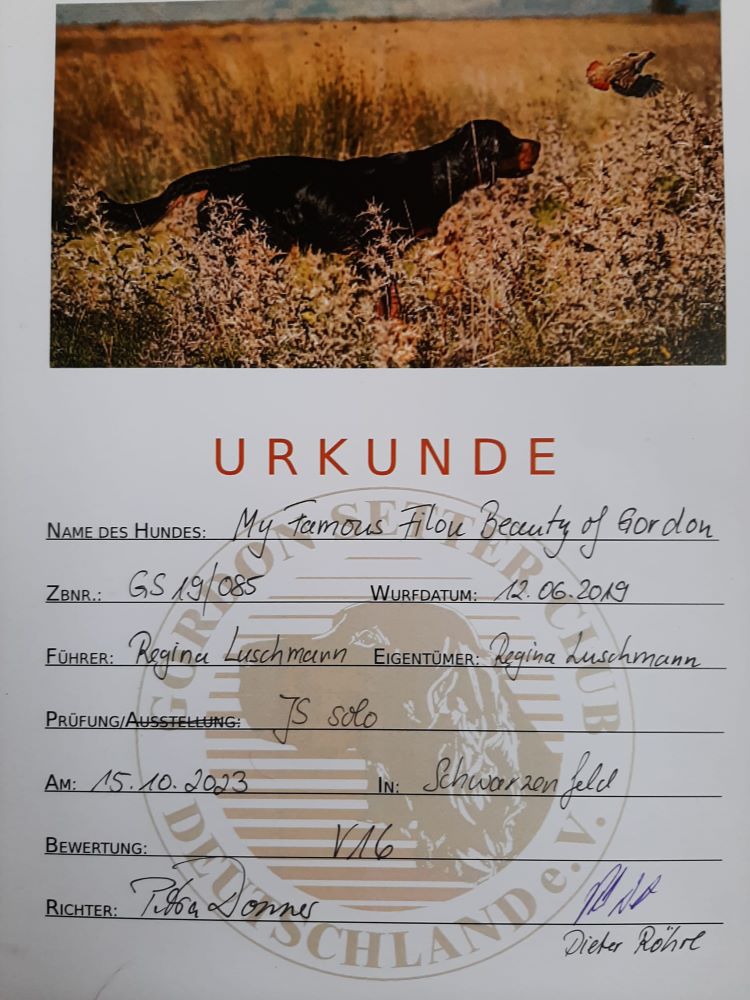 URKUNDE
NAME DES HUNDES: My Famous Filou Beauty of Gordon
ZBNR.: GS 19/085 WURFDATUM: 12.06.2019
FÜHRER: Regina Luschmann EIGENTÜMER: Regina Luschmann
PRÜFUNG/AUSSTELLUNG: JS solo
AM: 15.10.2023 IN: Schwarzenfeld
BEWERTUNG: V16
RICHTER: Petra Donner
Dieter Röhrl
GORDON SETTER CLUB
DEUTSCHLAND e.V.